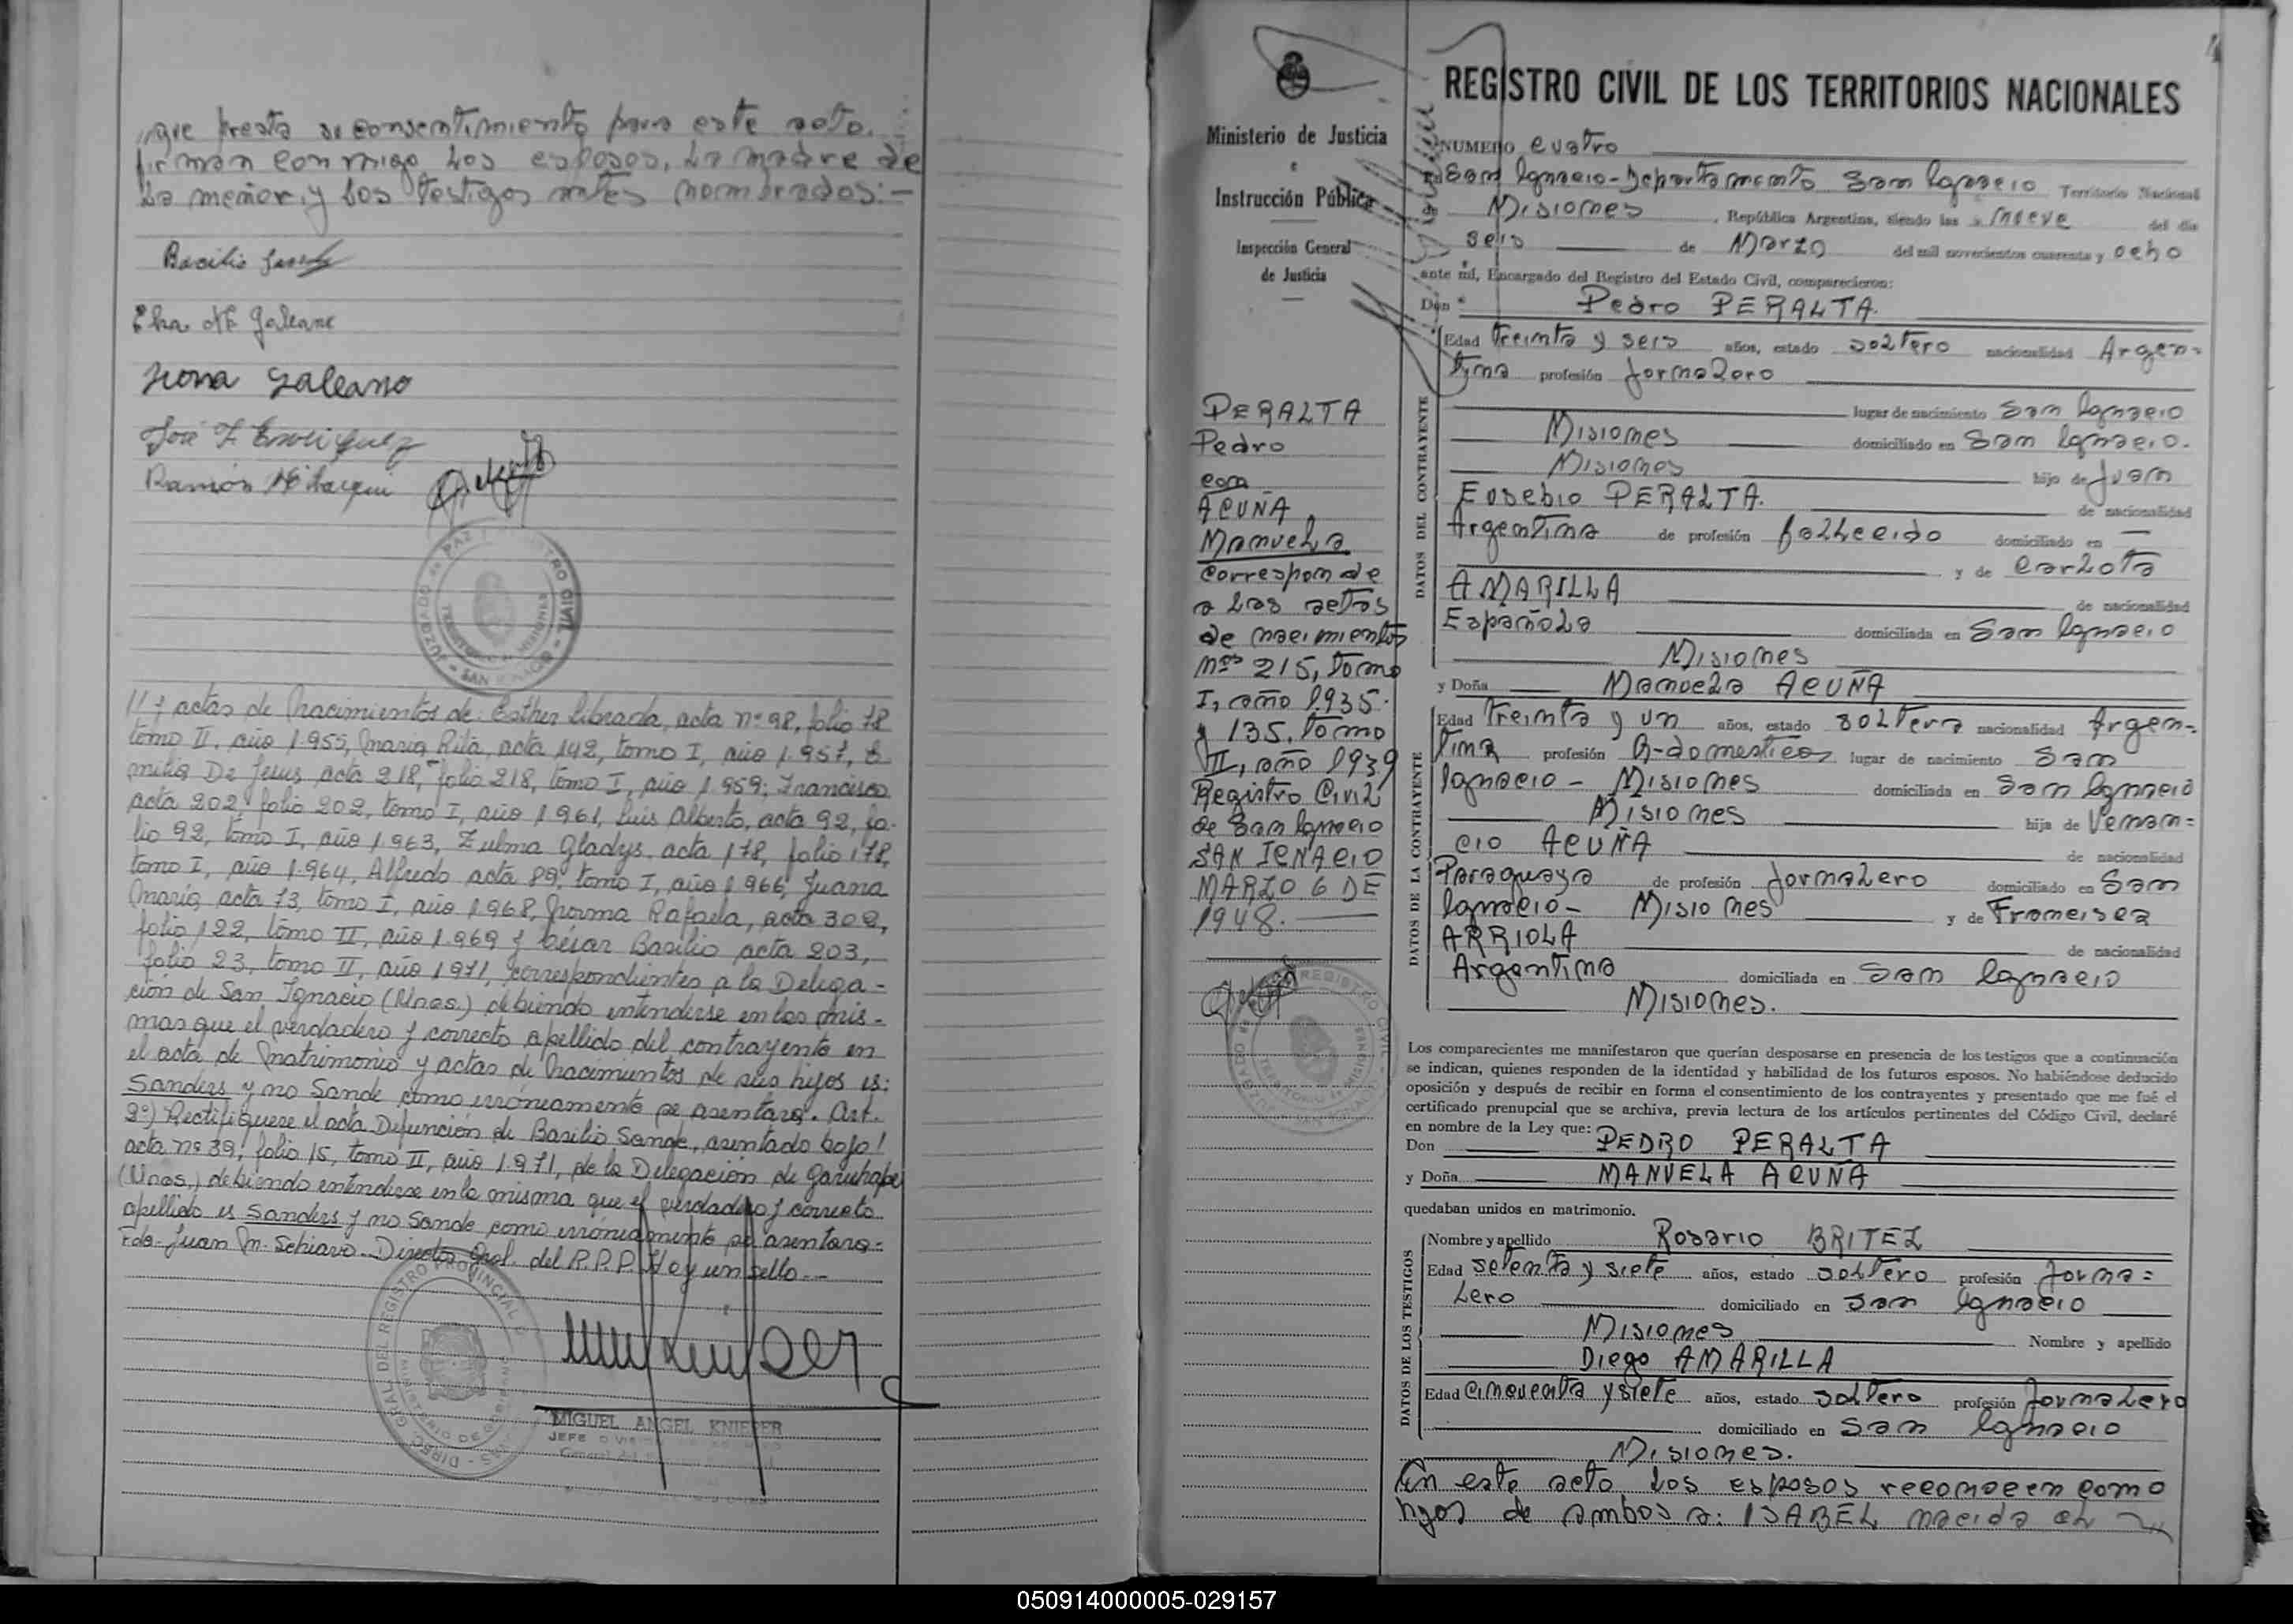 que presta su consentimiento para este acto.
firman conmigo los esposos, la madre de
la menor, y los testigos antes nombrados:-
Basilio
Elsa N E Galeano
Galeano
José F. Enriquez
Ramón
JUZGADO de PAZ REGISTRO CIVIL - SAN IGNACIO -
TERRITORIO de MISIONES
// y actas de Nacimientos de: Esther Librada, acta nº 98, folio 78
tomo II, año 1.955, María Rita, acta 142, tomo I, año 1.957, E
milia De Jesus acta 218, folio 218, tomo I, año 1.959; Francisco
acta 202, folio 202, tomo I, año 1961, Luis Alberto, acta 92, fo-
lio 92, tomo I, año 1963, Zulma Gladys, acta 178, folio 178,
tomo I, año 1.964, Alfredo acta 89, tomo I, año 1966, Juana
María, acta 73, tomo I, año 1968, Norma Rafaela, acta 302,
folio 122, tomo II, año 1.969 y César Basilio acta 203,
folio 23, tomo II, año 1971, correspondientes a la Delega-
ción de San Ignacio (Mnes.) debiendo entenderse en las mis-
mas que el verdadero y correcto apellido del contrayente en
el acta de Matrimonio y actas de Nacimientos de sus hijos es:
Sanders y no Sande como erróneamente se asentara. Art.
2º) Rectifíquese el acta Defunción de Basilio Sande, asentado bajo!
acta nº 39, folio 15, tomo II, año 1.971, de la Delegación de Garuhape
(Mnes.) debiendo entenderse en la misma que el verdadero y correcto
apellido es Sanders y no Sande como erróneamente se asentara.-
Fdo- Juan M. Schiavo- Director Gral. del R.P.P. Hay un sello.-
MIGUEL ANGEL KNIEPER
JEFE
Ministerio de Justicia
e
Instrucción Pública
Inspección General
de Justicia
PERALTA
Pedro
con
ACUÑA
Manuela
Corresponde
a las actas
de nacimientos
nos 215, tomo
I, año 1935.
y 135. tomo
II, año 1939
Registro Civil
de San Ignacio
SAN IGNACIO
MARZO 6 DE
1948.
REGISTRO CIVIL DE LOS TERRITORIOS NACIONALES
NUMERO cuatro
En San Ignacio-Departamento San Ignacio Territorio Nacional
de Misiones, República Argentina, siendo las nueve del día
seis de Marzo del mil novecientos cuarenta y ocho
ante mí, Encargado del Registro del Estado Civil, comparecieron:
Don Pedro PERALTA.
DATOS DEL CONTRAYENTE
Edad treinta y seis años, estado soltero nacionalidad Argen=
tina profesión jornalero
lugar de nacimiento San Ignacio
Misiones domiciliado en San Ignacio.
Misiones hijo de Juan
Eusebio PERALTA. de nacionalidad
Argentina de profesión fallecido domiciliado en —
y de Carlota
AMARILLA de nacionalidad
Española domiciliada en San Ignacio
Misiones
y Doña Manuela ACUÑA
DATOS DE LA CONTRAYENTE
Edad treinta y un años, estado soltera nacionalidad Argen-
tina profesión Q-domesticos lugar de nacimiento San
Ignacio - Misiones domiciliada en San Ignacio
Misiones hija de Venan=
cio ACUÑA de nacionalidad
Paraguaya de profesión jornalero domiciliado en San
Ignacio- Misiones y de Francisca
ARRIOLA de nacionalidad
Argentina domiciliada en San Ignacio
Misiones.
Los comparecientes me manifestaron que querían desposarse en presencia de los testigos que a continuación
se indican, quienes responden de la identidad y habilidad de los futuros esposos. No habiéndose deducido
oposición y después de recibir en forma el consentimiento de los contrayentes y presentado que me fué el
certificado prenupcial que se archiva, previa lectura de los artículos pertinentes del Código Civil, declaré
en nombre de la Ley que:
Don PEDRO PERALTA
y Doña MANUELA ACUÑA
quedaban unidos en matrimonio.
DATOS DE LOS TESTIGOS
Nombre y apellido Rosario BRITEZ
Edad setenta y siete años, estado soltero profesión jorna=
lero domiciliado en San Ignacio
Misiones Nombre y apellido
Diego AMARILLA
Edad cincuenta y siete años, estado soltero profesión jornalero
domiciliado en San Ignacio
Misiones.
En este acto los esposos reconocen como
hijos de ambos a: ISABEL nacida el
050914000005-029157